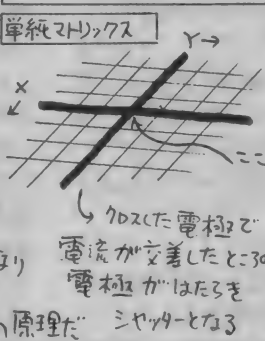 単純マトリックス
Y→
X
↙
ここ
↳クロスした電極で
電流が交差したところの
電極がはたらき
シャッターとなる
より
原理だ